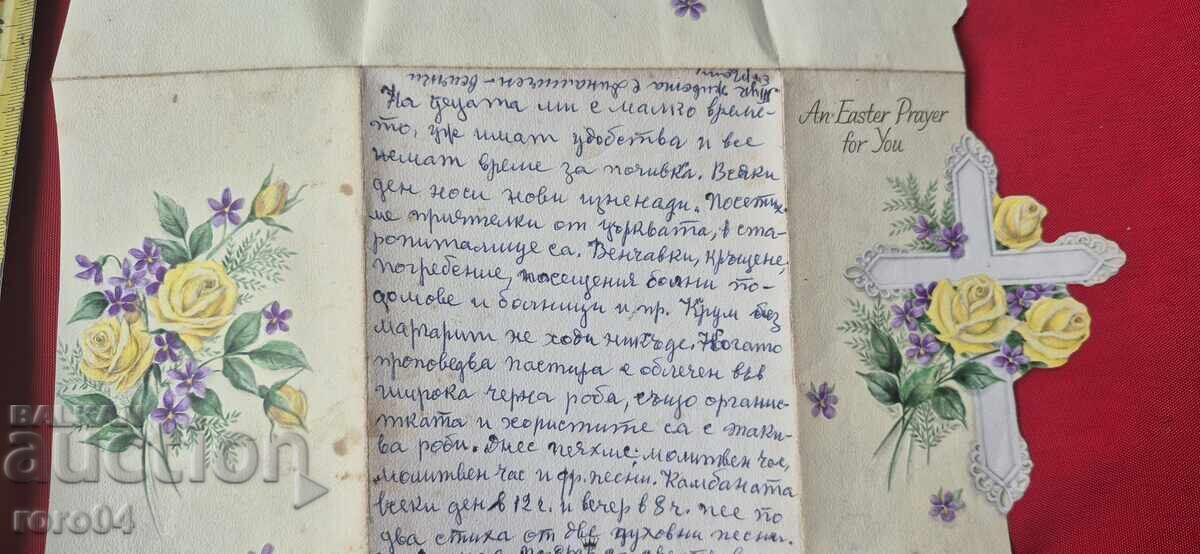 Тук живота е динамичен - всички
На децата ми е малко време-
то, уж имат удобства и все
немат време за почивка. Всеки
ден носи нови изненади. Посетих-
ме приятелки от църквата, в ста-
ропиталище са. Венчавки, кръщене,
погребение, посещения болни по
домове и болници и пр. Крум без
маргарит не ходи никъде. Когато
проповедва пастира е облечен във
широка черна роба, също органис-
тката и хористите са с таки-
ва роби. Днес пяхме: молитвен час,
молитвен час и др. песни. Камбаната
всеки ден в 12 ч. и вечер в 8 ч. пее по
два стиха от две духовни песни.
An Easter Prayer
for You
BALKAN
auction
roro04